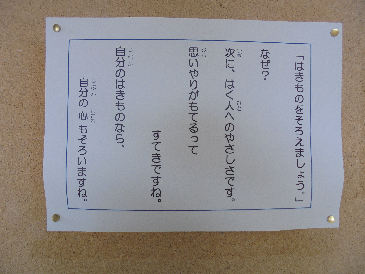 「はきものをそろえましょう。」
なぜ？
次に、はく人へのやさしさです。
思いやりがもてるって
すてきですね。
自分のはきものなら、
自分の心もそろいますね。